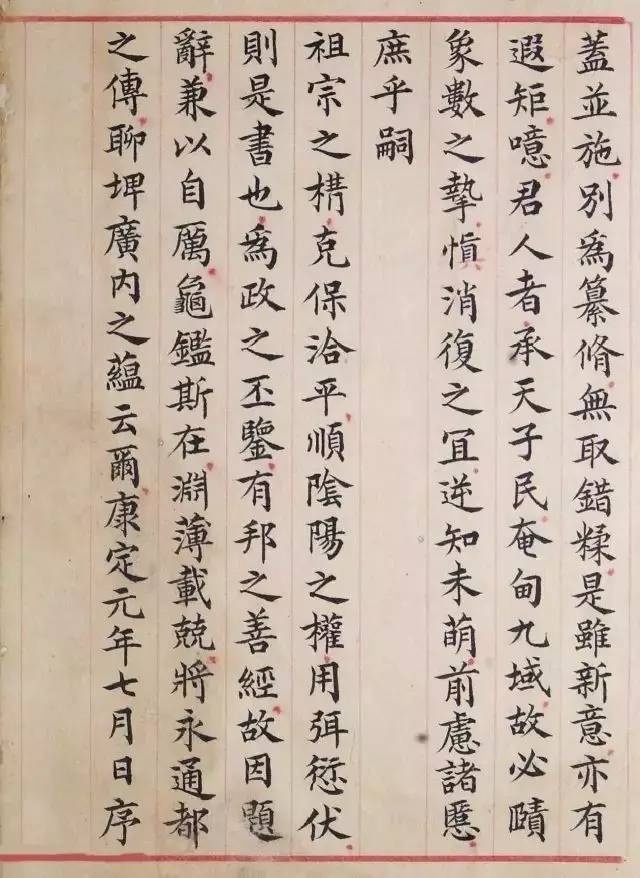 蓋並施別為纂脩無取錯糅是雖新意亦有
遐矩噫君人者承天子民奄甸九域故必賾
象數之摯慎消復之宜逆知未萌前慮諸慝
庶乎嗣
祖宗之構克保洽平順陰陽之權用弭愆伏
則是書也為政之丕鑒有邦之善經故因題
辭兼以自厲龜鑑斯在淵薄載兢將永通都
之傳聊埤廣內之蘊云爾康定元年七月日序